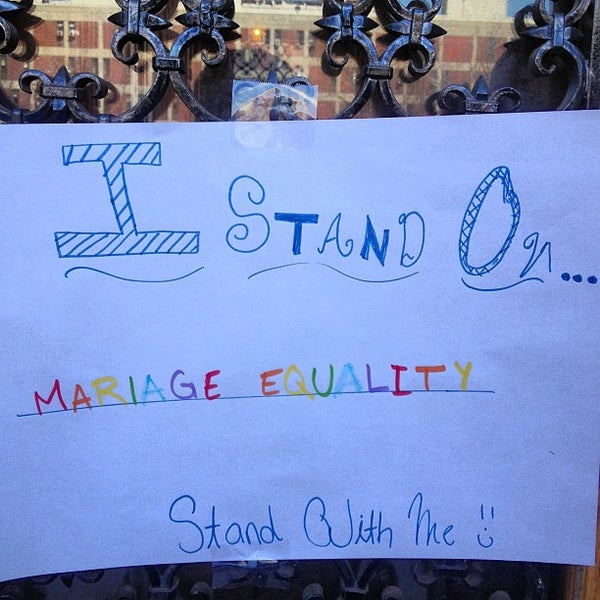 I STAND On...
MARIAGE EQUALITY
Stand With Me :)